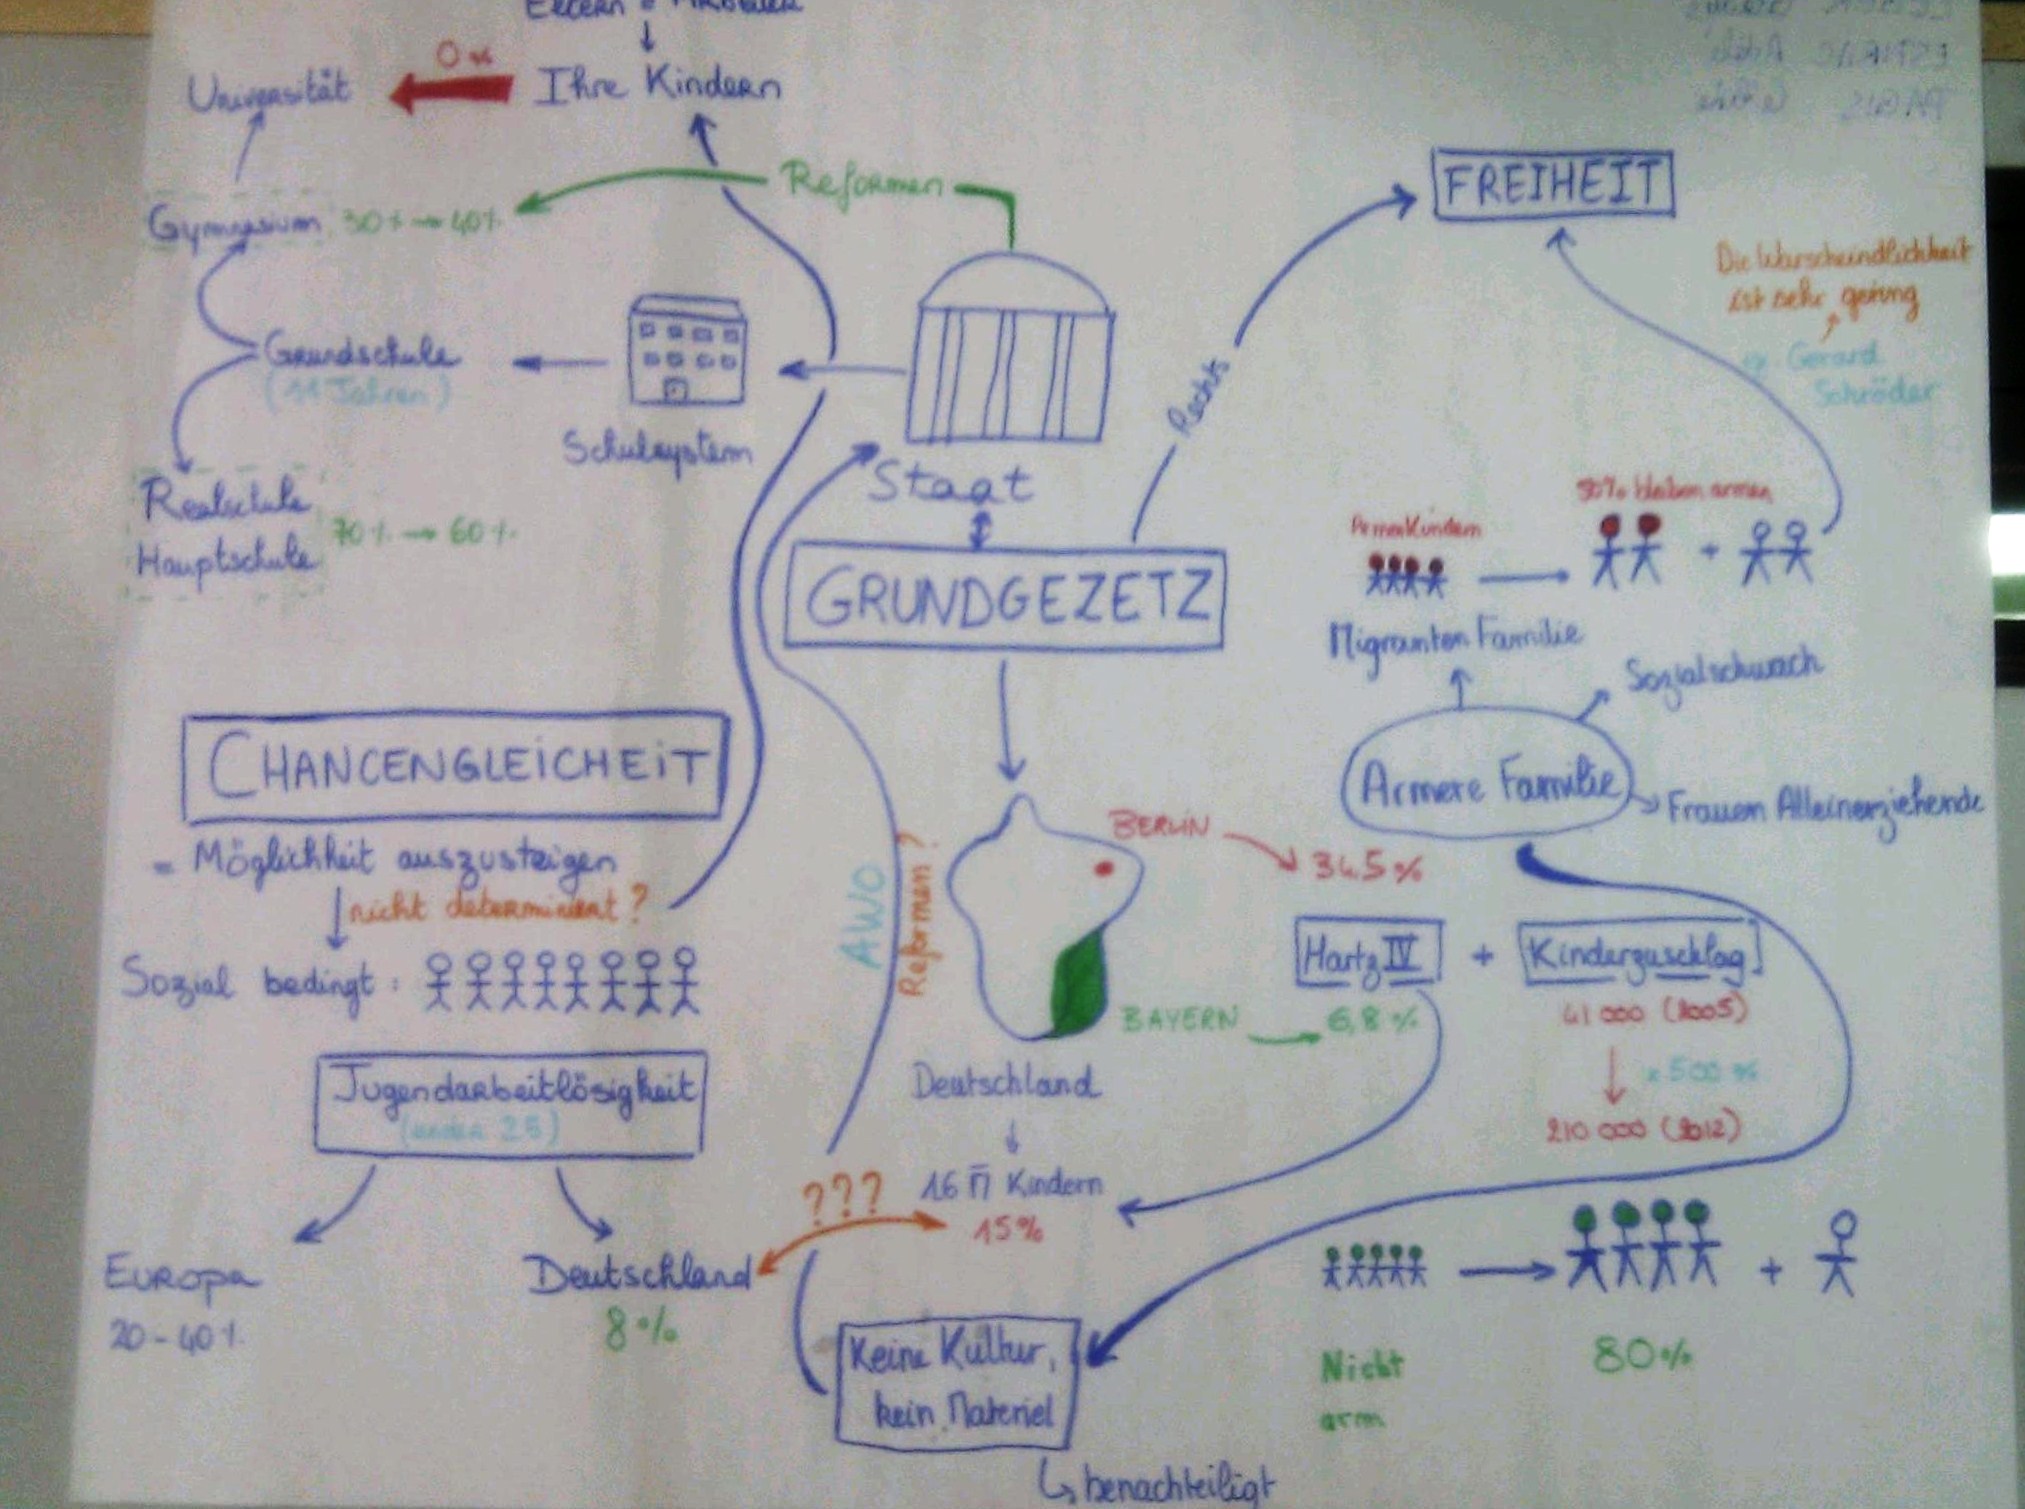 Eltern = Arbeiter
0%
Universität
Ihre Kindern
Reformen
Gymnasium 30% → 40%
FREIHEIT
Die Warscheindlichkeit
ist sehr gering
Gerard
Schröder
Grundschule
(11 Jahren)
Schulsystem
Rechts
Staat
Realschule
Hauptschule
70% → 60%
50% bleiben armen
Armen Kindern
+
GRUNDGEZETZ
Migranten Familie
Sozialschwach
Armere Familie
Frauen Alleinerziehende
CHANCENGLEICHEIT
= Möglichkeit auszusteigen
nicht determiniert?
Sozial bedingt:
AWO
Reformen?
BERLIN
34.5%
Hartz IV + Kinderzuschlag
BAYERN
6,8%
41 000 (2005)
x 500 %
210 000 (2012)
Deutschland
Jugendarbeitlösigkeit
(under 25)
16 M Kindern
15%
???
Europa
20-40%
Deutschland
8%
+
Nicht
arm
80%
Keine Kultur,
kein Materiel
benachteiligt